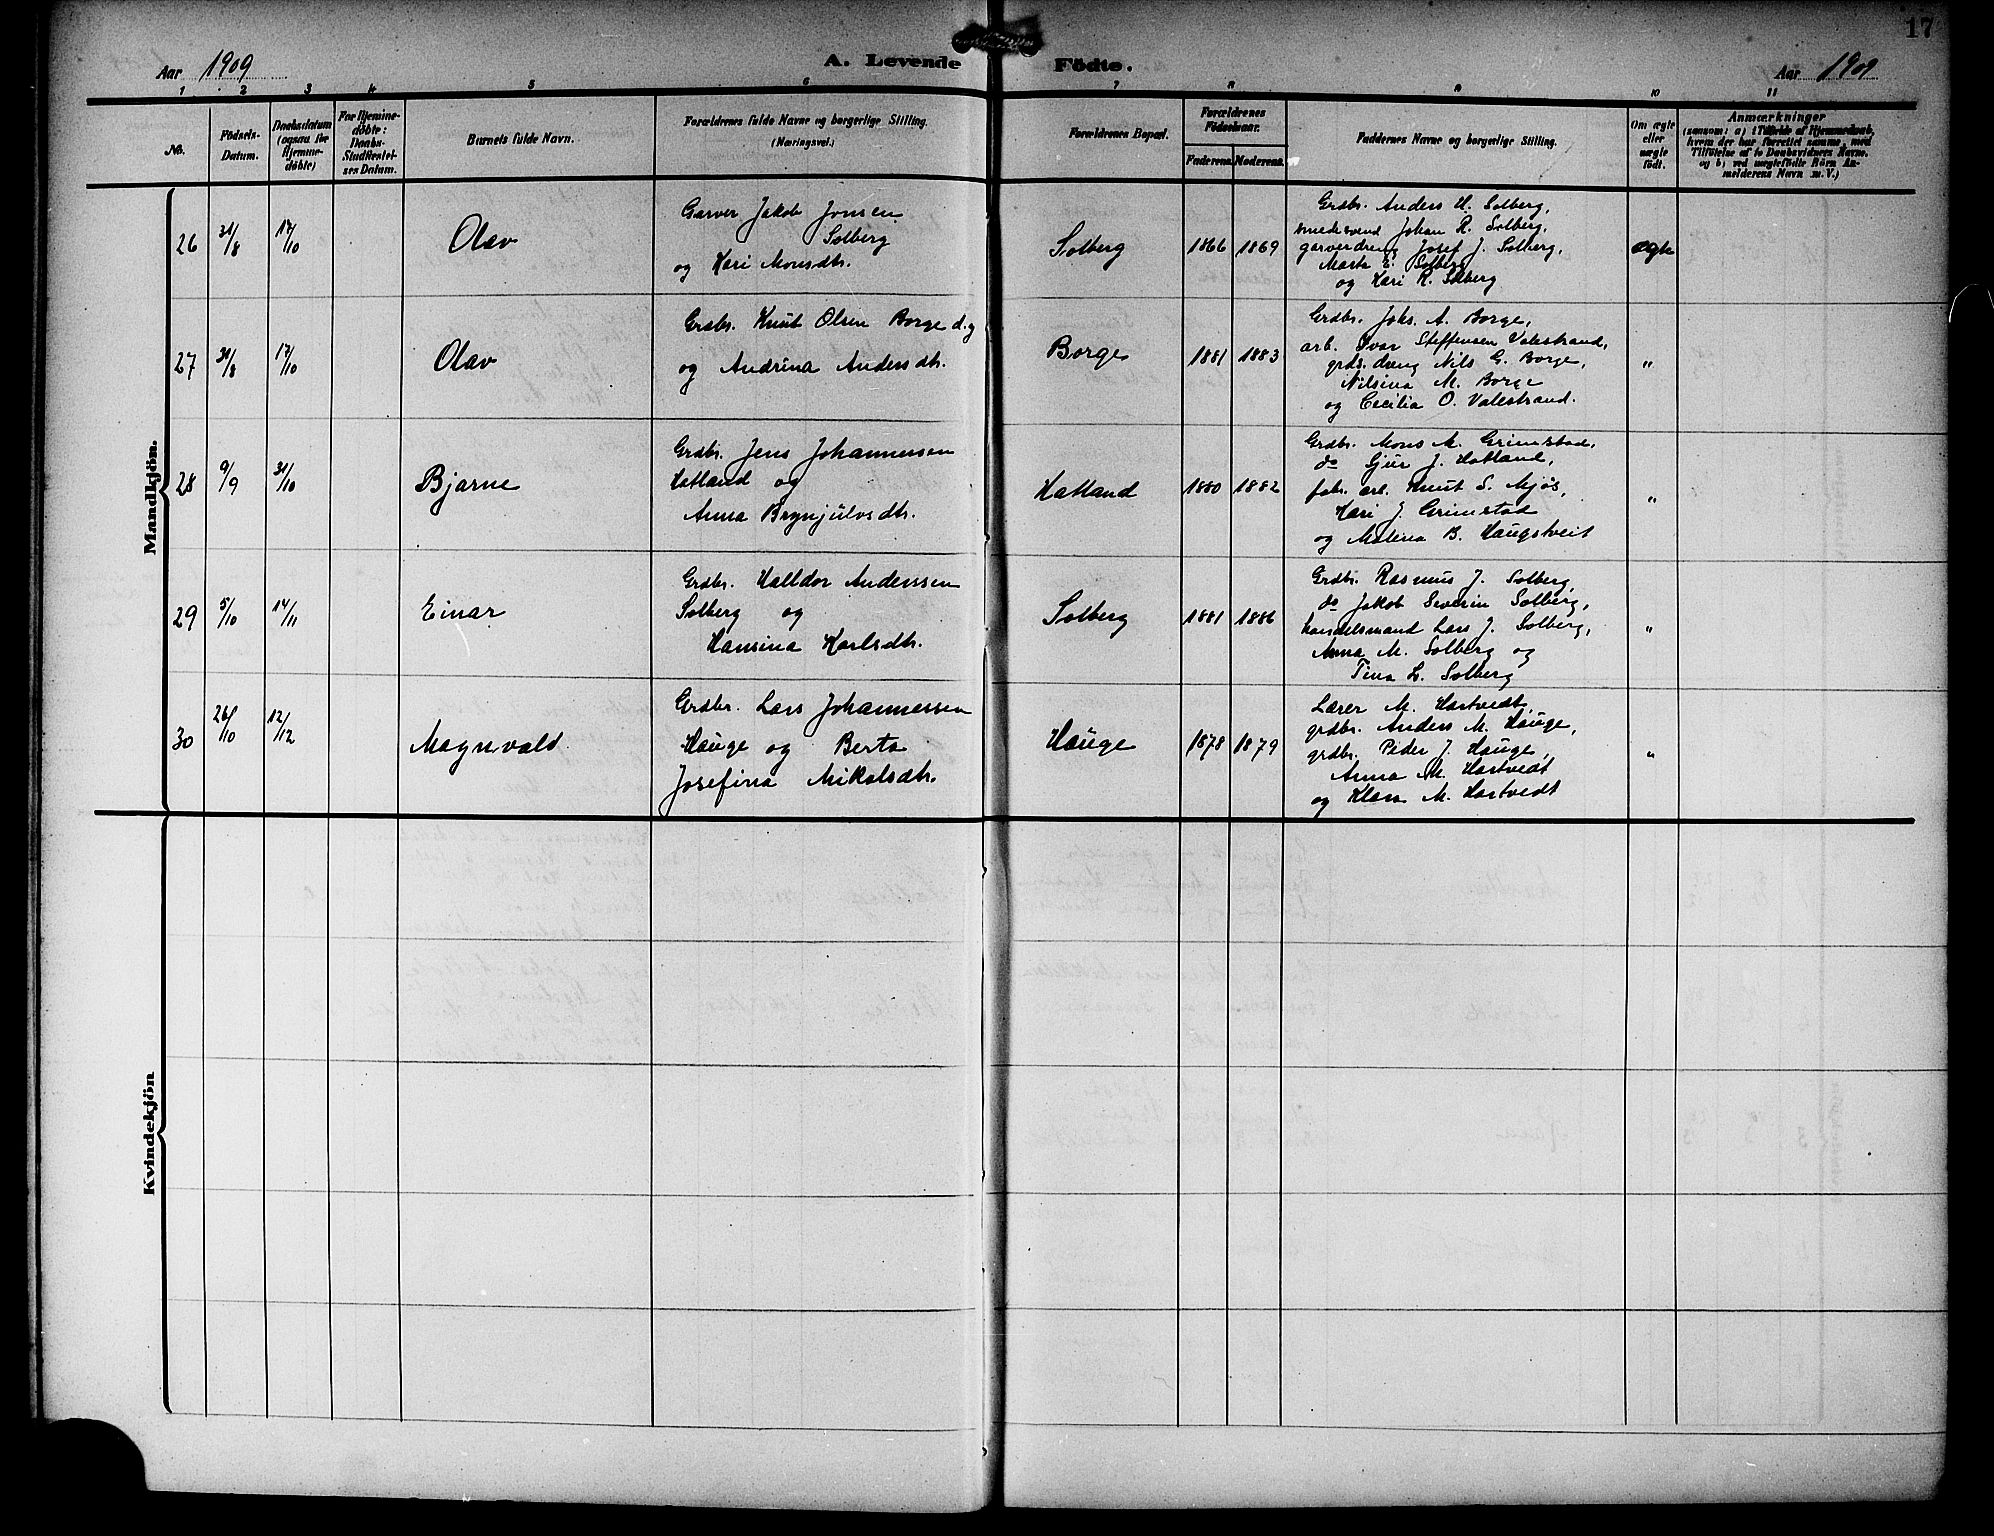 17
Aar 1909 A. Levende Födte. Aar 1909
1 2 3 4 5 6 7 8 9 10 11
No.
Födsels-
Datum.
Daabsdatum
(ogsaa for
Hjemme-
döbte)
For Hjemme-
döbte:
Daabs-
Stadfæstel-
ses Datum.
Barnets fulde Navn.
Forældrenes fulde Navne og borgerlige Stilling.
(Næringsvei.)
Forældrenes Bopæl.
Forældrenes
Födselsaar.
Faderens. Moderens.
Faddernes Navne og borgerlige Stilling.
Om ægte
eller
uægte
födt.
Anmærkninger
(saasom: a) i Tilfælde af Hjemmedaab,
hvem der har forrettet samme, med
Tilföielse af to Daabsvidners Navne.
og b) ved uægtefödte Börn An-
melderens Navn m. V.)
Mandkjön.
26 31/8 17/10 Olav
Garver Jakob Jonsen
Solberg
og Kari Monsdtr.
Solberg 1866 1869
Grdbr. Anders H. Solberg,
smedesvend Johan R. Solberg,
garverdreng Josef J. Solberg,
Marta E. Solberg
og Kari R. Solberg
ægte
27 31/8 17/10 Olav
Grdbr. Knut Olsen Borge d.y
og Andrina Andersdtr.
Borge 1881 1883
Grdbr. Johs. A. Borge,
arb. Ivar Steffensen Valestrand,
grds. dreng Nils G. Borge,
Nilsina M. Borge
og Cecilia O. Valestrand.
"
28 9/9 31/10 Bjarne
Grdbr. Jens Johannessen
Hatland og
Anna Brynjulvsdtr.
Hatland 1880 1882
Grdbr. Mons M. Grimstad,
do Gjur J. Hatland,
fabr. arb. Knut S. Mjøs,
Kari J. Grimstad
og Malena B. Haugstveit
"
29 5/10 14/11 Einar
Grdbr. Halldor Anderssen
Solberg og
Hansina Karlsdtr.
Solberg 1881 1886
Grdbr. Rasmus J. Solberg,
do Jakob Severin Solberg,
handelsmand Lars J. Solberg,
Anna M. Solberg og
Tina L. Solberg
"
30 26/10 12/12 Magnvald
Grdbr. Lars Johannessen
Hauge og Berta
Josefina Mikalsdtr.
Hauge 1878 1879
Lærer M. Hartvedt,
grdbr. Anders M. Hauge,
grdbr. Peder J. Hauge,
Anna M. Hartvedt
og Klara M. Hartvedt
"
Kvindekjön